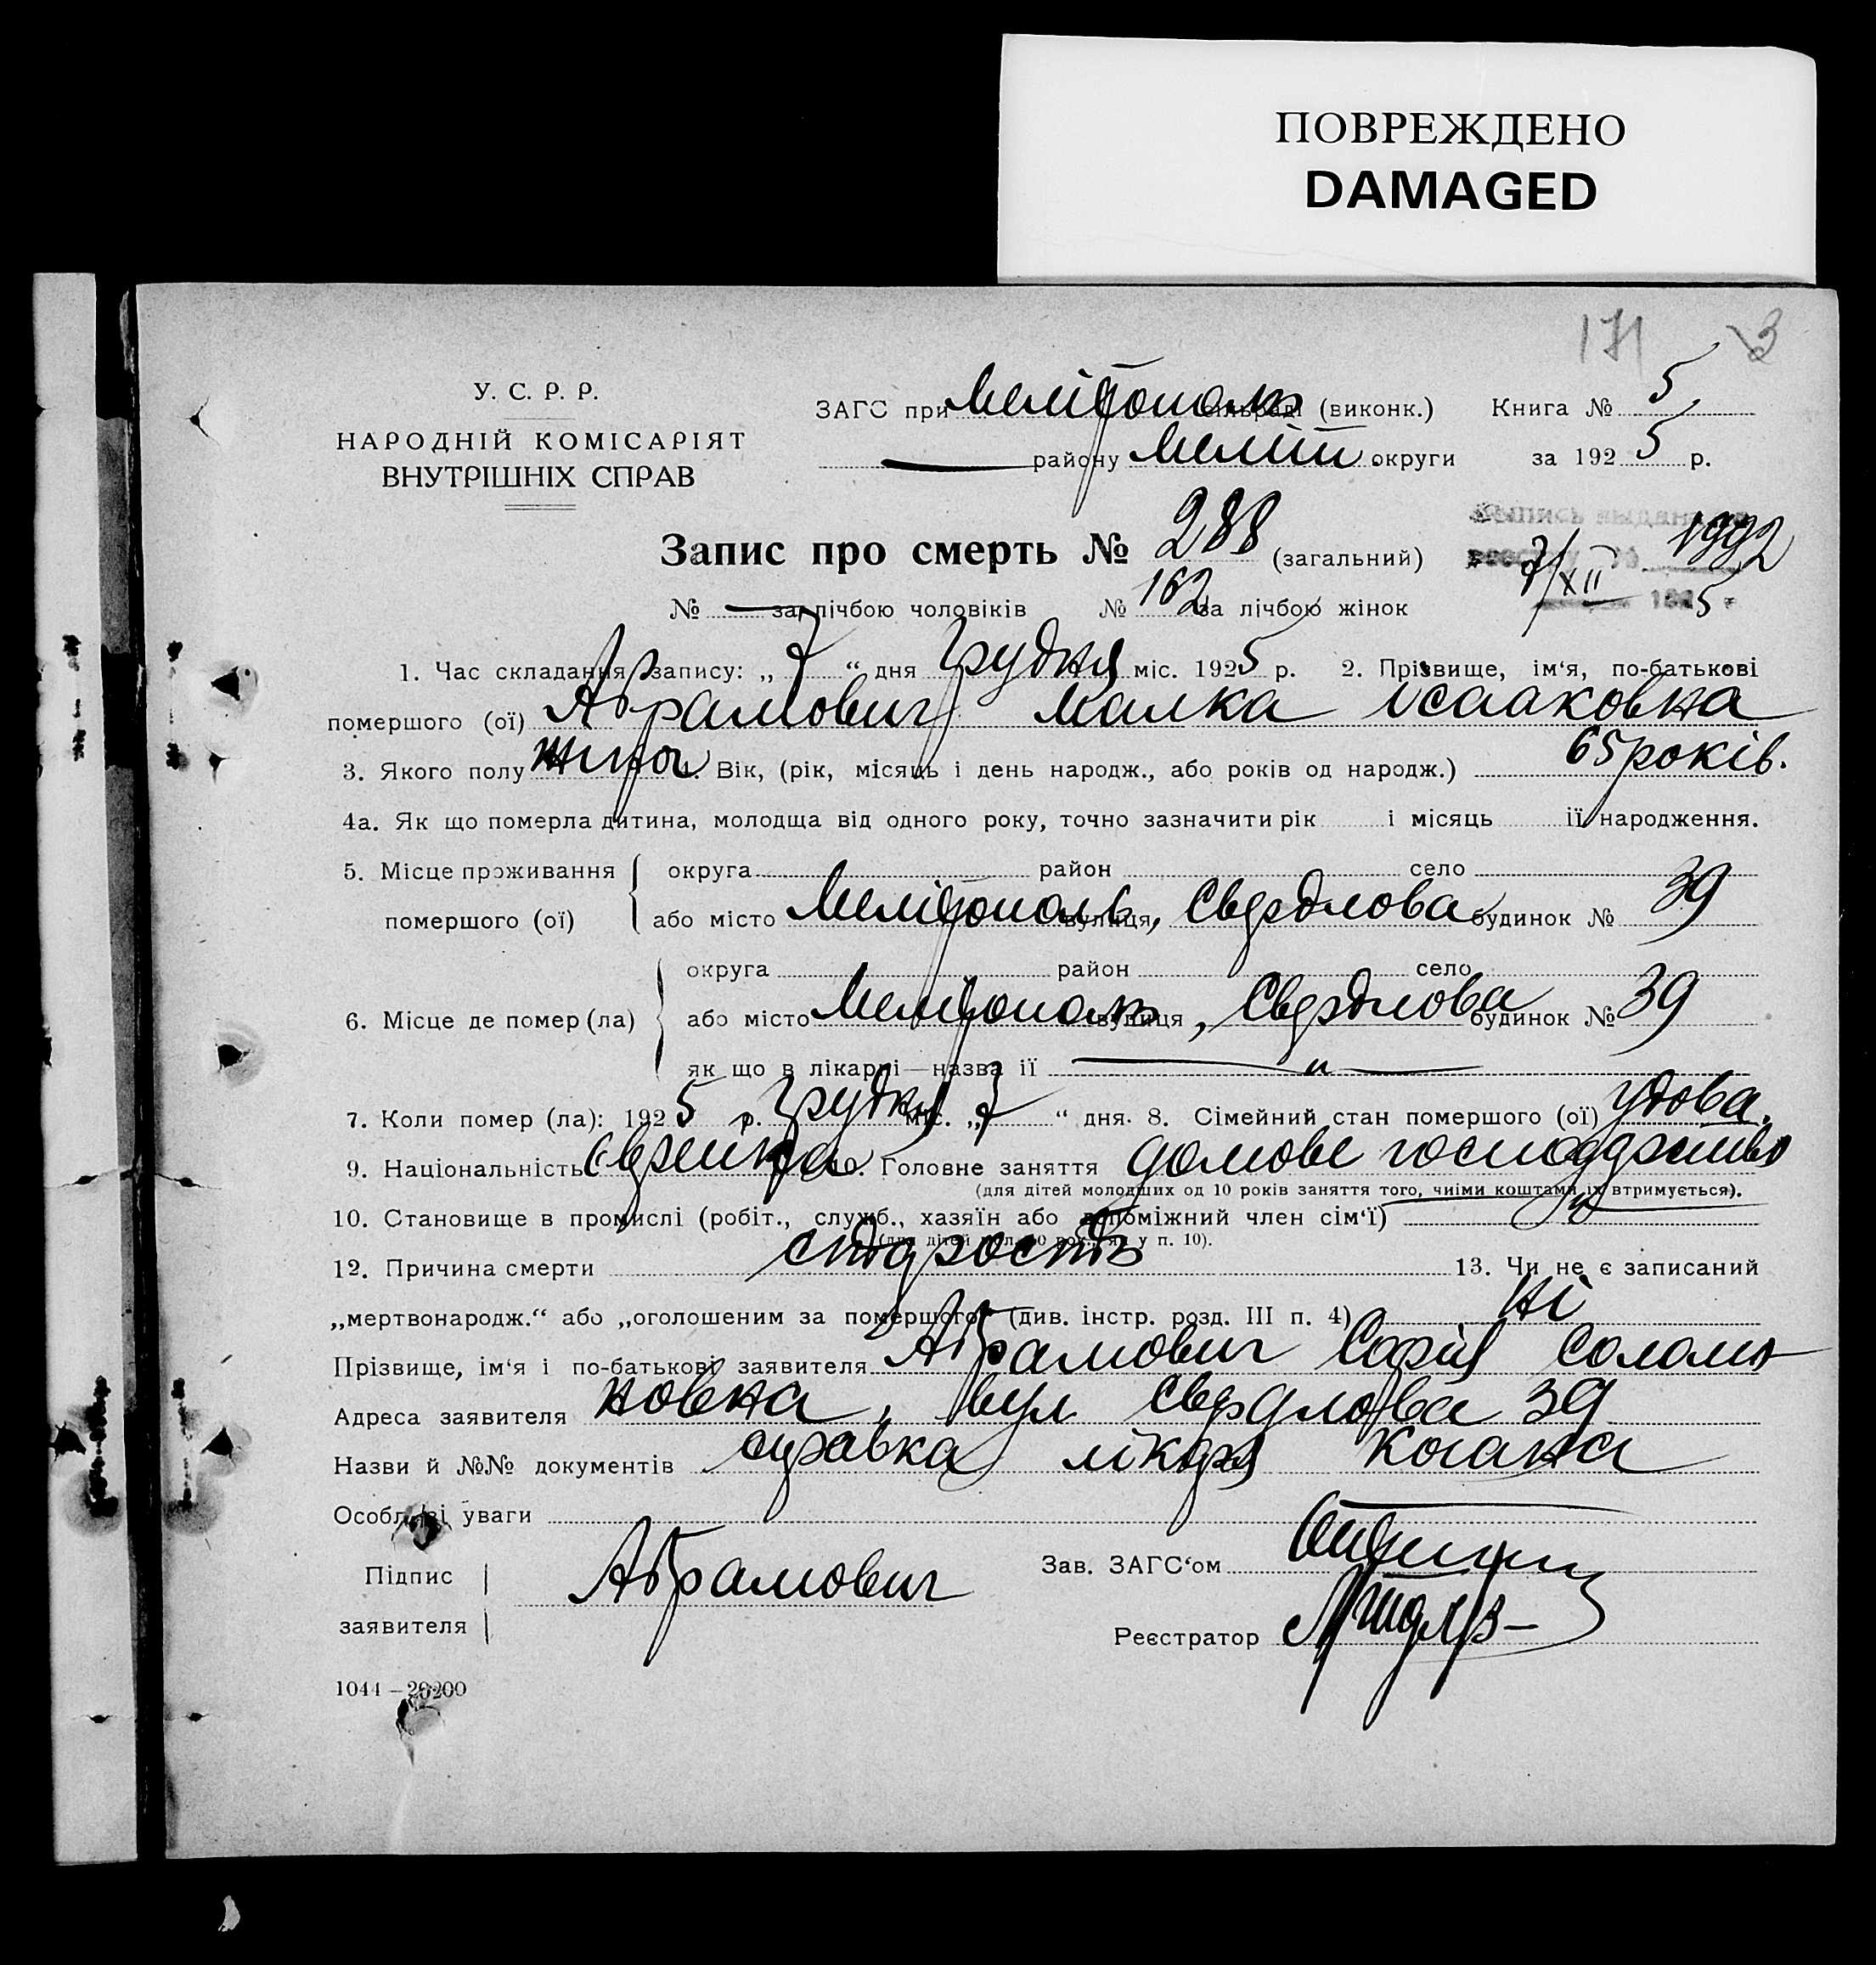 ПОВРЕЖДЕНО
DAMAGED
171 3
У. С. Р. Р.
НАРОДНІЙ КОМІСАРІЯТ
ВНУТРІШНІХ СПРАВ
ЗАГС при Мелітополь сільраді (виконк.) Книга № 5
— району Меліт округи за 1925 р.
Запис про смерть № 288 (загальний)
Выпись выдана 1992
7/XII 1925 г
№ — за лічбою чоловіків № 162 за лічбою жінок
1. Час складання запису: „7“ дня Грудня міс. 1925 р. 2. Прізвище, ім‘я, по-батькові
помершого (ої) Абрамович Малка Ісааковна
3. Якого полу жіноч 4. Вік, (рік, місяць і день народж., або років од народж.) 65 років.
4а. Як що померла дитина, молодща від одного року, точно зазначити рік і місяць її народження.
5. Місце проживання помершого (ої) округа район село
або місто Мелітополь, вулиця Свердлова будинок № 39
6. Місце де помер (ла) округа район село
або місто Мелітополь вулиця, Свердлова будинок № 39
як що в лікарні—назва її — „ —
7. Коли помер (ла): 1925 р. Грудня міс. „7“ дня. 8. Сімейний стан помершого (ої) удова.
9. Національність Єврейка 10. Головне заняття домове господарство
(для дітей молодших од 10 років заняття того, чиїми коштами їх втримується).
10. Становище в промислі (робіт., служб., хазяїн або допоміжний член сім‘ї) — „ —
(для дітей мол. 10 рок., як у п. 10).
12. Причина смерти старость 13. Чи не є записаний
„мертвонародж.“ або „оголошеним за помершого“ (див. інстр. розд. III п. 4) Ні
Прізвище, ім‘я і по-батькові заявителя Абрамович Софія Соломо
Адреса заявителя новна, вул Свердлова 39
Назви й №№ документів справка лікаря Когана
Особливі уваги
Підпис заявителя Абрамович
Зав. ЗАГС‘ом
Реєстратор
1044 — 20200